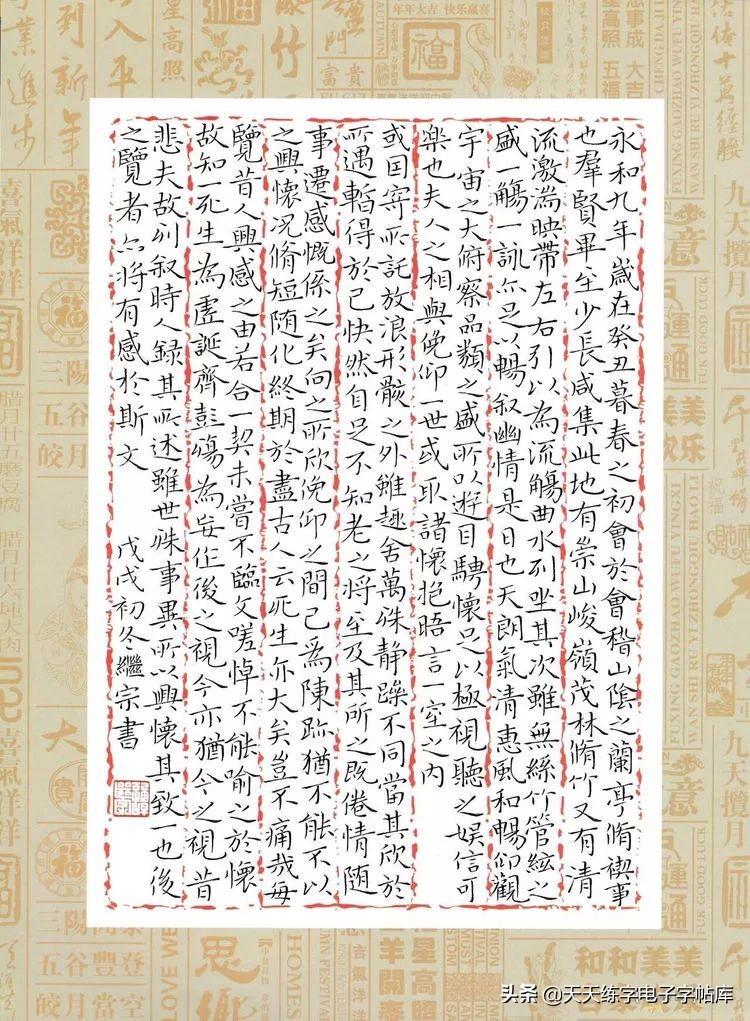 永和九年歲在癸丑暮春之初會於會稽山陰之蘭亭脩禊事
也羣賢畢至少長咸集此地有崇山峻嶺茂林脩竹又有清
流激湍映帶左右引以為流觴曲水列坐其次雖無絲竹管絃之
盛一觴一詠亦足以暢叙幽情是日也天朗氣清惠風和暢仰觀
宇宙之大俯察品類之盛所以遊目騁懷足以極視聽之娛信可
樂也夫人之相與俛仰一世或取諸懷抱晤言一室之內
或因寄所託放浪形骸之外雖趣舍萬殊静躁不同當其欣於
所遇暫得於己快然自足不知老之將至及其所之既倦情隨
事遷感慨係之矣向之所欣俛仰之間已為陳跡猶不能不以
之興懷况脩短隨化終期於盡古人云死生亦大矣豈不痛哉每
覽昔人興感之由若合一契未嘗不臨文嗟悼不能喻之於懷
故知一死生為虛誕齊彭殤為妄作後之視今亦猶今之視昔
悲夫故列叙時人録其所述雖世殊事異所以興懷其致一也後
之覽者亦將有感於斯文
戊戌初冬繼宗書
年年大吉 快乐赢喜
福
星高照
富貴
三陽
五谷
皎月
三陽
五谷豐登
皎月當空
思鄉
HOMES
九天攬月
和和美美
头条 @天天练字电子字帖库